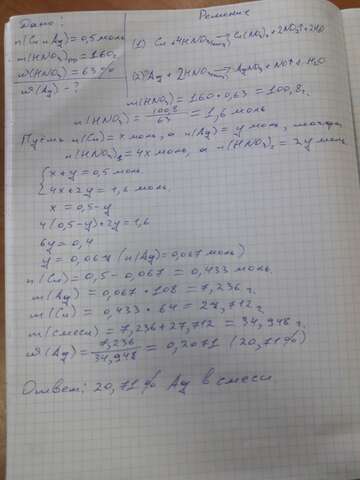 Дано:
Решение
n(Cu и Ag) = 0,5 моль
m(HNO₃)р-р = 160г
ω(HNO₃) = 63%
ω(Ag) - ?
(1) Cu + 4HNO₃ → Cu(NO₃)₂ + 2NO₂↑ + 2H₂O
(2) Ag + 2HNO₃ → AgNO₃ + NO₂↑ + H₂O
m(HNO₃) = 160 · 0,63 = 100,8г.
n(HNO₃) = 100,8/63 = 1,6 моль
Пусть n(Cu) = x моль, а n(Ag) = y моль, тогда
n(HNO₃)₁ = 4x моль, а n(HNO₃)₂ = 2y моль
{ x + y = 0,5 моль
4x + 2y = 1,6 моль.
x = 0,5 - y
4(0,5-y) + 2y = 1,6
6y = 0,4
y = 0,067 (n(Ag) = 0,067 моль)
n(Cu) = 0,5 - 0,067 = 0,433 моль.
m(Ag) = 0,067 · 108 = 7,236 г.
m(Cu) = 0,433 · 64 = 27,712г.
m(смеси) = 7,236 + 27,712 = 34,948 г.
ω(Ag) = 7,236/34,948 = 0,2071 (20,71%)
Ответ: 20,71% Ag в смеси